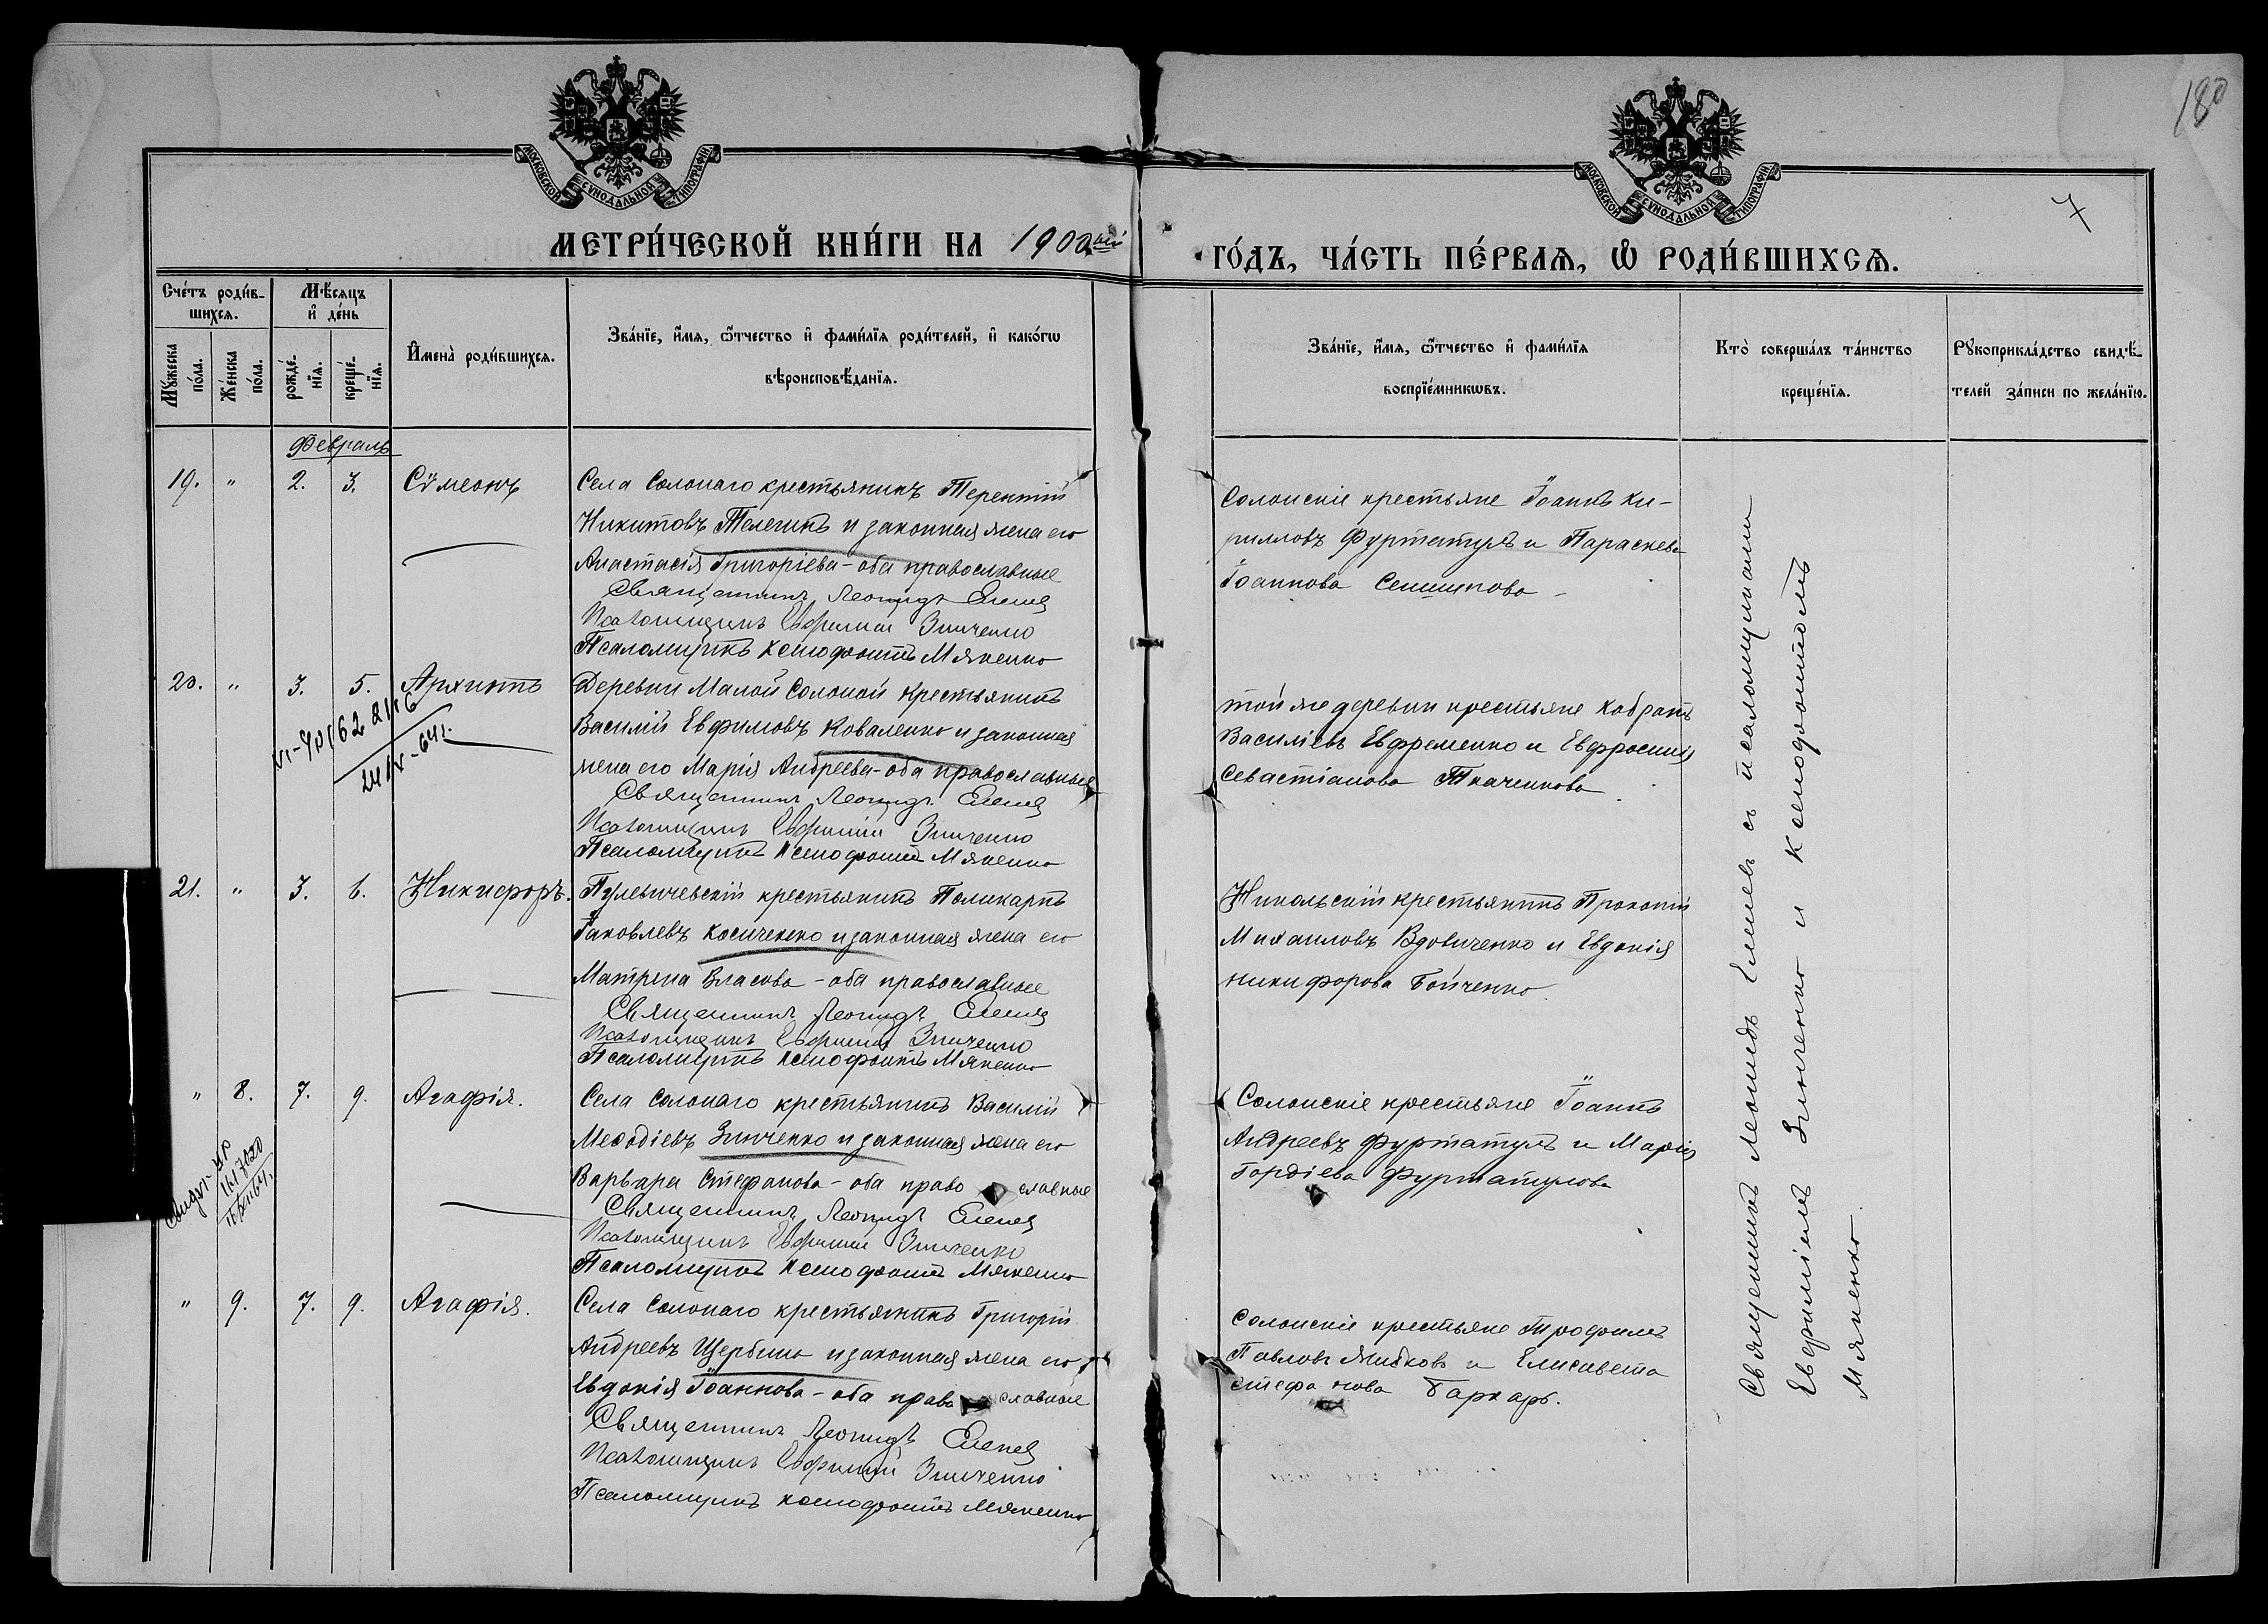 180
7
МОСКОВСКОЙ СѴНОДАЛЬНОЙ ТИПОГРАФІИ
МОСКОВСКОЙ СѴНОДАЛЬНОЙ ТИПОГРАФІИ
МЕТРИ́ЧЕСКОЙ КНИ́ГИ НА 1900ый
ГО́ДЪ, ЧА́СТЬ ПЕ́РВАЯ, Ѡ РОДИ́ВШИХСЯ.
Сче́тъ роди́в-
шихся.
Му́жеска по́ла.
Же́нска по́ла.
Мѣ́сяцъ
и де́нь
рожде́нія.
креще́нія.
Имена̀ роди́вшихся.
Зва́ніе, и́мя, ѻ́тчество и фами́лія роди́телей, и како́гѡ
вѣроисповѣ́данія.
Зва́ніе, и́мя, ѻ́тчество и фами́лія
воспріе́мникѡвъ.
Кто̀ соверша́лъ та́инство
креще́нія.
Рꙋкоприкла́дство свидѣ́-
телей за́писи по жела́нію.
Февраль
19. " 2. 3. Сѵмеонъ
Села Солонаго крестьянинъ Терентій
Никитовъ Телегинъ и законная жена его
Анастасія Григоріева - оба православные
Священникъ Леонидъ Еленев
Псаломщикъ Евфимій Зинченко
Псаломщикъ Ксенофонтъ Мякенко
Солонскіе крестьяне Іоаннъ Ки-
рилловъ Фуртатулъ и Параскева
Іоаннова
20. " 3. 5. Архиппъ
Деревни Малой Солоной крестьянинъ
Василій Евфимовъ Коваленко и законная
жена его Марія Андреева - оба православные
Священникъ Леонидъ Еленев
Псаломщикъ Евфимій Зинченко
Псаломщикъ Ксенофонтъ Мякенко
той же деревни крестьяне Кодратъ
Василіевъ Ефременко и Евфросинія
Севастіанова Ткаченкова
21. " 3. 6. Никифоръ.
Пулевичевскій крестьянинъ Поликарпъ
Іаковлевъ Косиченко и законная жена его
Матрена Власова - оба православные
Священникъ Леонидъ Еленев
Псаломщикъ Евфимій Зинченко
Псаломщикъ Ксенофонтъ Мякенко
Никольскій крестьянинъ Прокопій
Михаиловъ Вдовиченко и Евдокія
Никифорова Бойченко.
" 8. 7. 9. Агафія.
Села Солонаго крестьянинъ Василій
Меѳодіевъ Зинченко и законная жена его
Варвара Стефанова - оба право славные
Священникъ Леонидъ Еленев
Псаломщикъ Евфимій Зинченко
Псаломщикъ Ксенофонтъ Мякенко
Солонскіе крестьяне Іоаннъ
Андреевъ Фуртатулъ и Марія
Гордіева Фуртатулова
" 9. 7. 9. Агафія.
Села Солонаго крестьянинъ Григорій
Андреевъ Щербина и законная жена его
Евдокія Іоаннова - оба право славные
Священникъ Леонидъ Еленев
Псаломщикъ Евфимій Зинченко
Псаломщикъ Ксенофонтъ Мякенко
Солонскіе крестьяне Трофимъ
Павловъ и Елисавета
Стефанова Бархаръ.
Священникъ Леонидъ Еленевъ съ псаломщиками
Евфиміемъ Зинченко и Ксенофонтомъ
Мякенко.